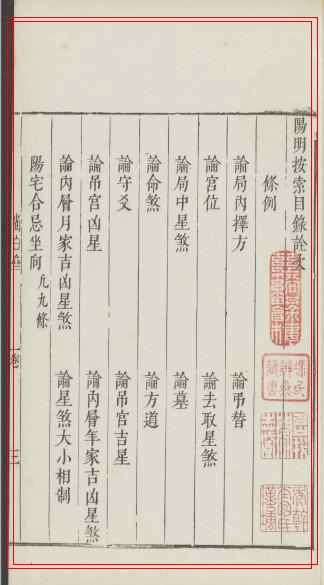 陽明按索目錄詮次
條例
論局內擇方 論弔替
論宮位 論去取星煞
論局中星煞 論墓
論命煞 論方道
論守爻 論吊宮吉星
論吊宮凶星 論內層年家吉凶星煞
論內層月家吉凶星煞 論星煞大小相制
陽宅合忌坐向 凡九條